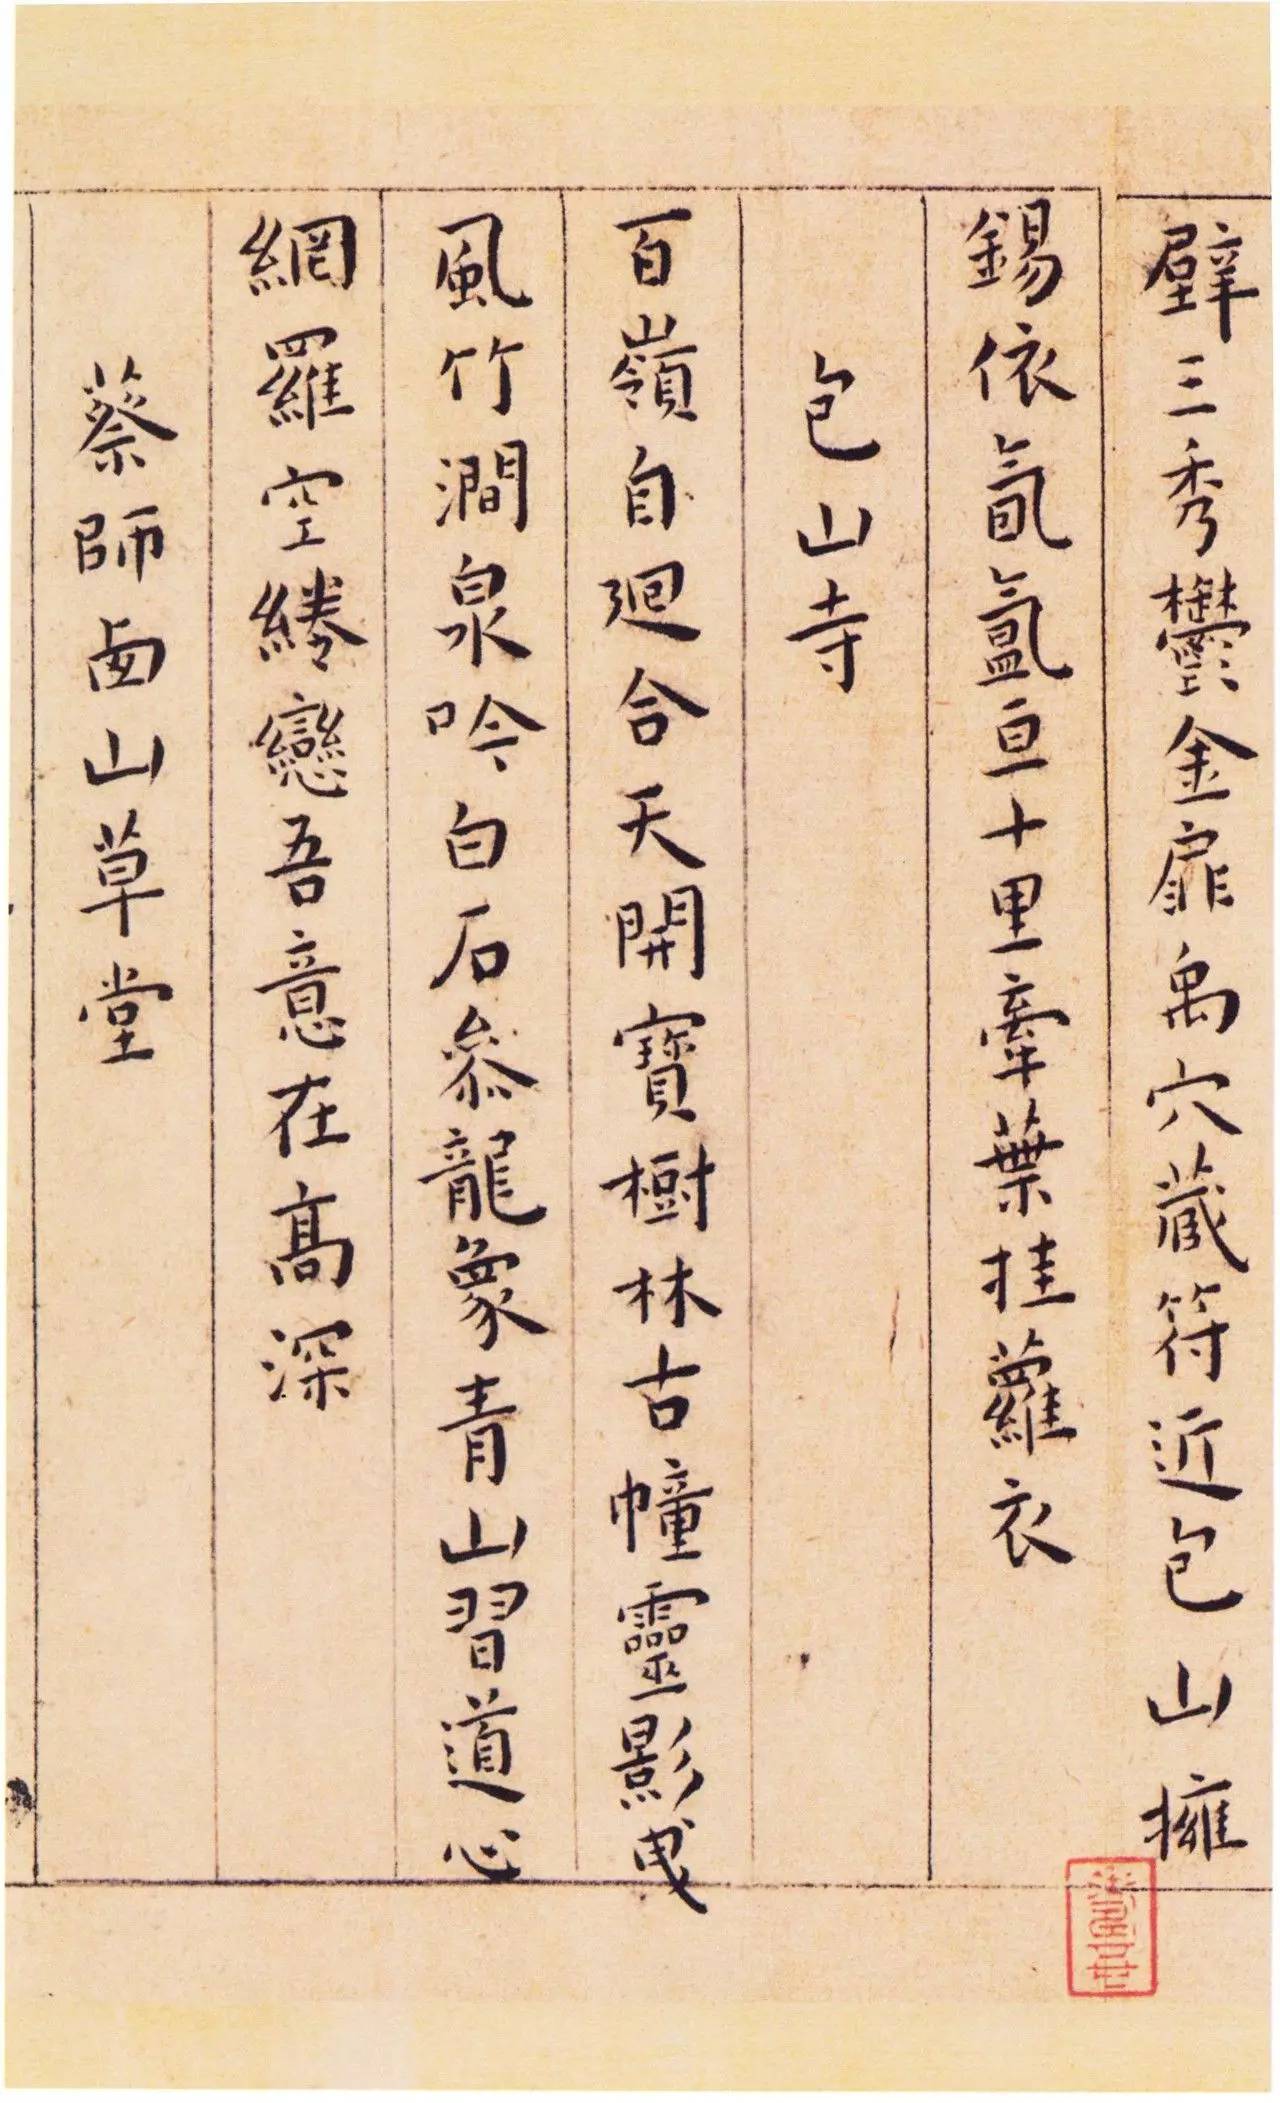 壁三秀鬱金扉禹穴藏符近包山擁
錫依氤氳亘十里牽葉挂蘿衣
包山寺
百嶺自迴合天開寶樹林古幢靈影曳
風竹澗泉吟白石參龍象青山習道心
網羅空綣戀吾意在高深
蔡師卤山草堂